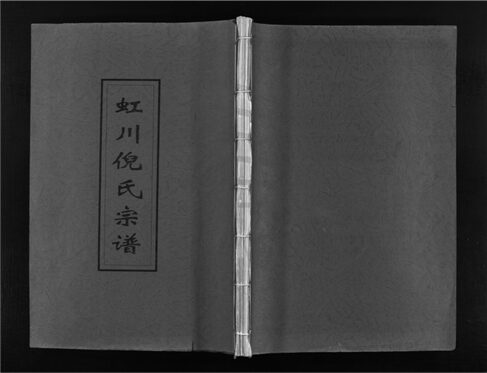 虹川倪氏宗谱